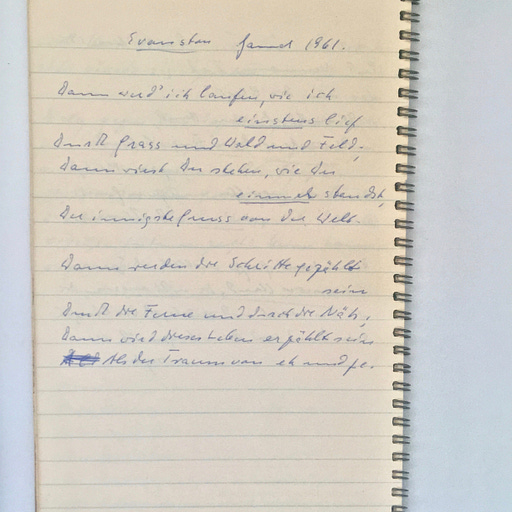 Evanston 1961.
Dann werd' ich laufen, wie ich
einstens lief
Durch Grass und Wald und Feld;
Dann wirst Du stehen, wie Du
einmal standst,
Der innigste Gruss von der Welt.
Dann werden die Schritte gezählt
sein
Durch die Ferne und durch die Näh;
Dann wird dieses Leben erzählt sein
Als der Traum von eh und je.